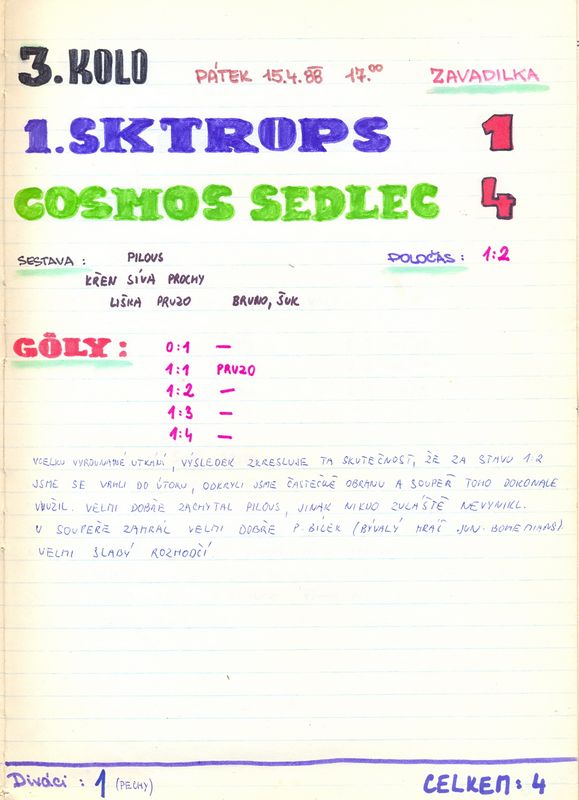 3. KOLO PÁTEK 15.4.88 17.00 ZAVADILKA
1. SK TROPS 1
COSMOS SEDLEC 4
SESTAVA : PILOUS POLOČAS : 1:2
KŘEN SÍVA PROCHY
LIŠKA PRUZO BRUNO, ŠUK
GÓLY : 0:1 —
1:1 PRUZO
1:2 —
1:3 —
1:4 —
VCELKU VYROVNANÉ UTKÁNÍ, VÝSLEDEK ZKRESLUJE TA SKUTEČNOST, ŽE ZA STAVU 1:2
JSME SE VRHLI DO ÚTOKU, ODKRYLI JSME ČÁSTEČNĚ OBRANU A SOUPEŘ TOHO DOKONALE
VYUŽIL. VELMI DOBŘE ZACHYTAL PILOUS, JINAK NIKDO ZVLÁŠTĚ NEVYNIKL.
U SOUPEŘE ZAHRÁL VELMI DOBŘE P. BÍLEK (BÝVALÝ HRÁČ JUN. BOHEMIANS).
VELMI SLABÝ ROZHODČÍ
Diváci : 1 (PECHY) CELKEM : 4